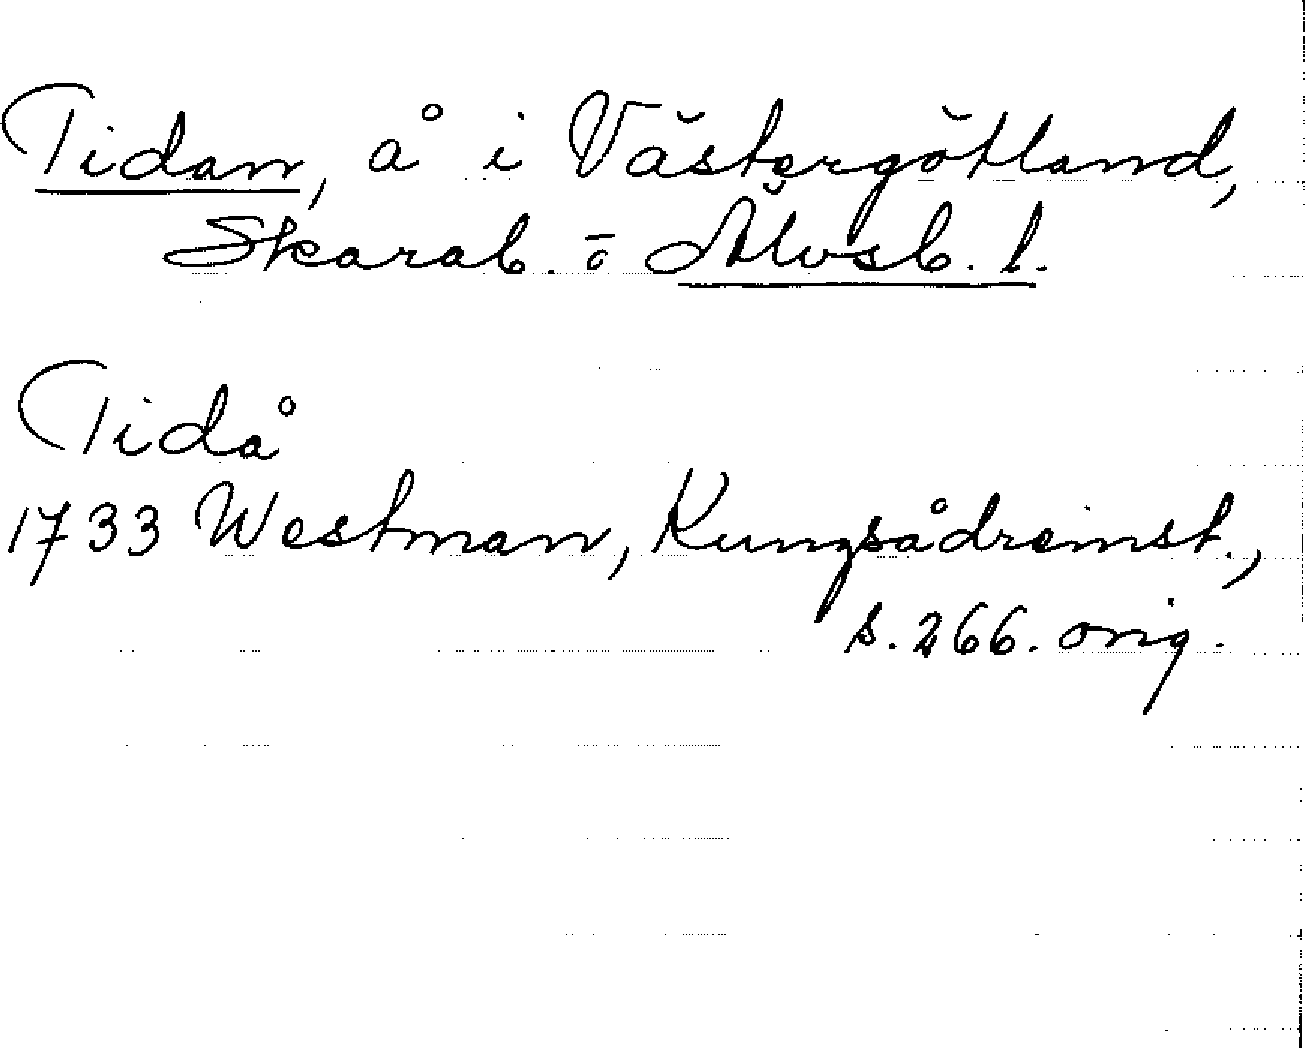 Tidan, å i Västergötland,
Skarab. o Älvsb. l.
Tidå
1733 Westman, Kungsådreinst.,
s. 266. orig.